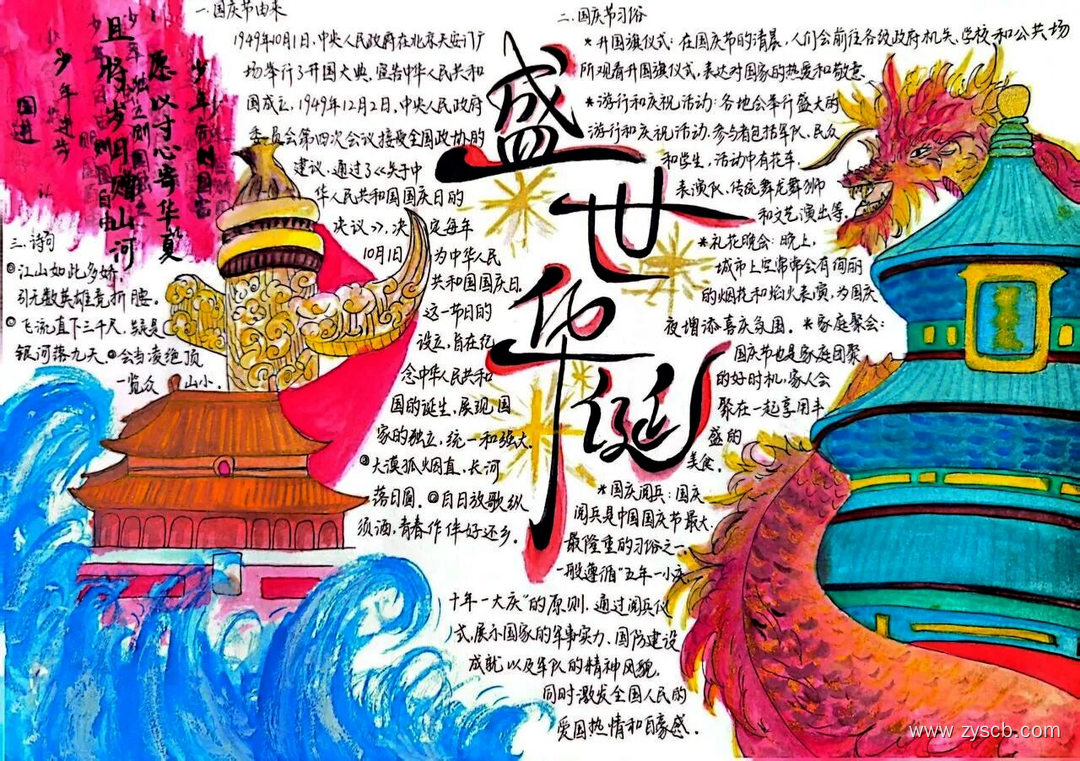 盛世华诞
愿以寸心寄华夏
且将岁月赠山河
少年进步
国进
一.国庆节由来
1949年10月1日,中央人民政府在北京天安门广
场举行了开国大典,宣告中华人民共和
国成立,1949年12月2日,中央人民政府
委员会第四次会议接受全国政协的
建议,通过了《关于中
华人民共和国国庆日的
决议》,决定每年
10月1日为中华人民
共和国国庆日.
这一节日的
设立,旨在纪
念中华人民共和
国的诞生,展现国
家的独立,统一和强大.
二.国庆节习俗
*升国旗仪式:在国庆节的清晨,人们会前往各级政府机关、学校和公共场
所观看升国旗仪式,表达对国家的热爱和敬意.
*游行和庆祝活动:各地会举行盛大的
游行和庆祝活动.参与者包括军队、民众
和学生,活动中有花车,
表演队,传统舞龙舞狮
和文艺演出等.
*礼花晚会:晚上,
城市上空常常会有绚丽
的烟花和焰火表演,为国庆
夜增添喜庆氛围.*家庭聚会:
国庆节也是家庭团聚
的好时机,家人会
聚在一起享用丰
盛的
美食.
*国庆阅兵:国庆
阅兵是中国国庆节最大.
最隆重的习俗之一.
一般遵循"五年一小庆
十年一大庆"的原则.通过阅兵仪
式,展示国家的军事实力、国防建设
成就以及军队的精神风貌.
同时激发全国人民的
爱国热情和自豪感.
三.诗句
①江山如此多娇,
引无数英雄竞折腰.
②飞流直下三千尺,疑是
银河落九天.③会当凌绝顶
一览众山小.
④大漠孤烟直,长河
落日圆.⑤白日放歌纵
须酒,青春作伴好还乡.
www.zyscb.com